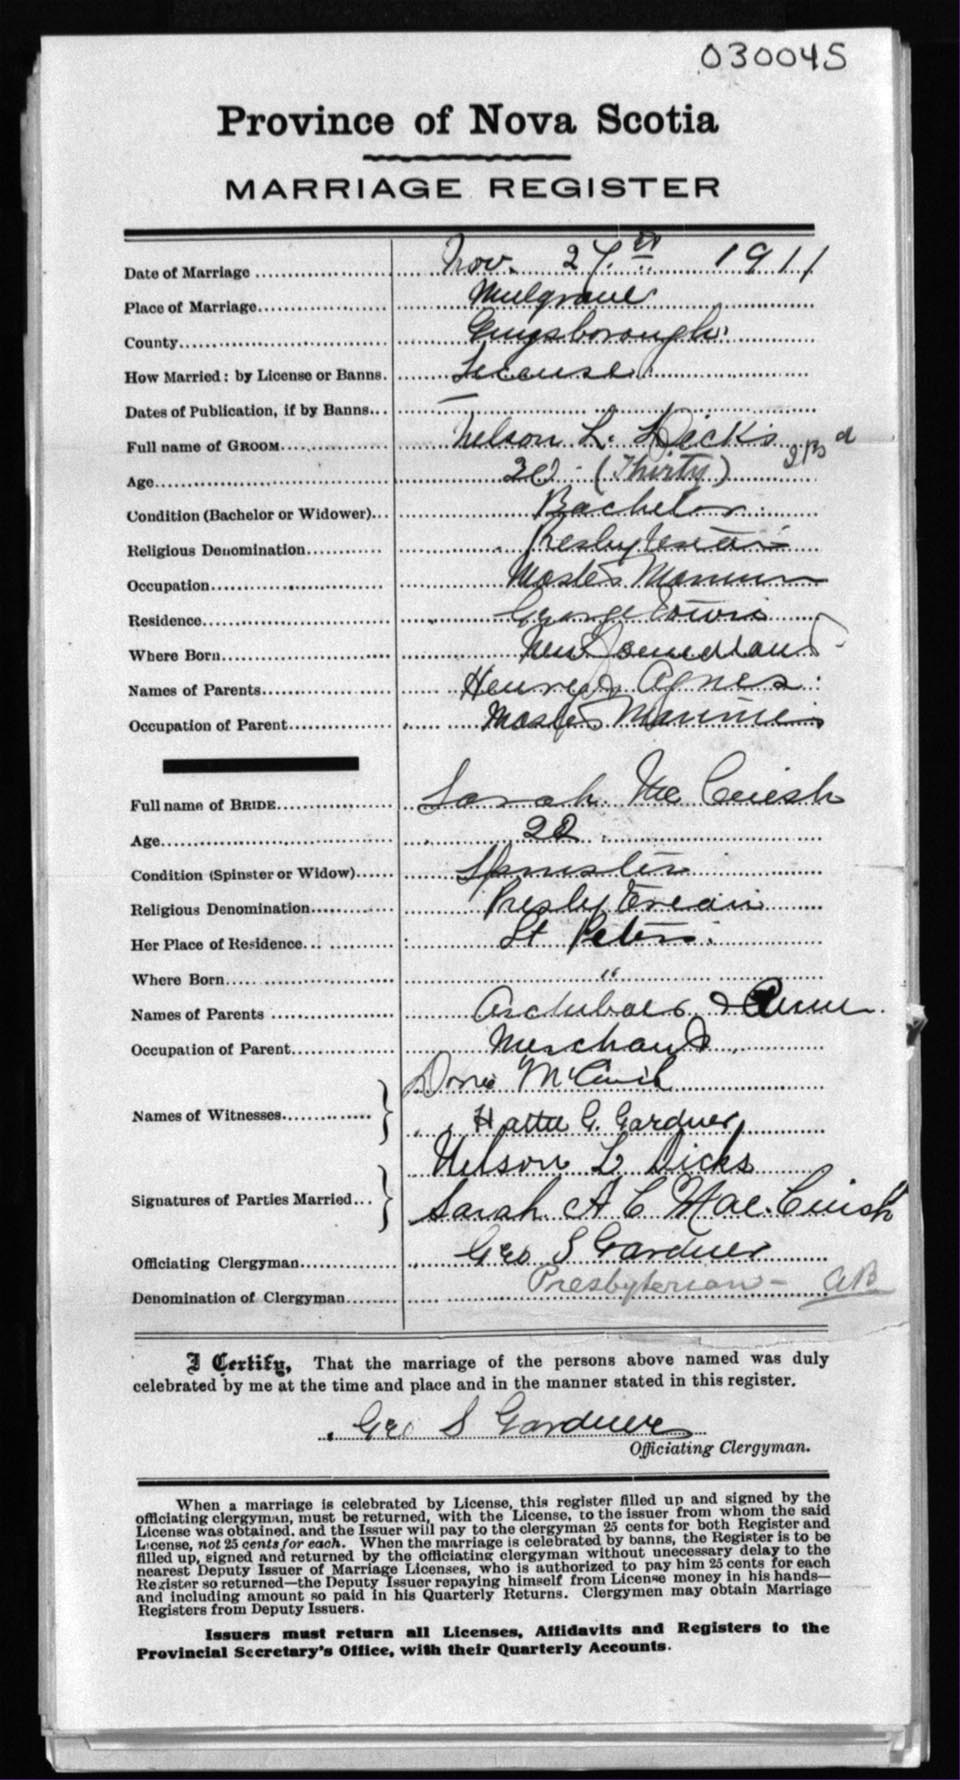 030045
Province of Nova Scotia
MARRIAGE REGISTER
Date of Marriage Nov. 27th 1911
Place of Marriage Mulgrave
County Guysborough
How Married: by License or Banns. License
Dates of Publication, if by Banns... —
Full name of GROOM Nelson L. Dicks
Age 30 (Thirty)
Condition (Bachelor or Widower)... Bachelor
Religious Denomination Presbyterian
Occupation Master Mariner
Residence Georgetown
Where Born Newfoundland
Names of Parents Henry & Agnes
Occupation of Parent Master Mariner
Full name of BRIDE Sarah Mc Cuish
Age 22
Condition (Spinster or Widow) Spinster
Religious Denomination Presbyterian
Her Place of Residence St Peters
Where Born "
Names of Parents Archibald & Annie
Occupation of Parent Merchant
Names of Witnesses McCuish
Hattie G. Gardner
Nelson L Dicks
Signatures of Parties Married
Sarah A C Mac Cuish
Officiating Clergyman Geo S Gardner
Denomination of Clergyman Presbyterian — AB
I Certify, That the marriage of the persons above named was duly
celebrated by me at the time and place and in the manner stated in this register.
Geo S Gardner
Officiating Clergyman.
When a marriage is celebrated by License, this register filled up and signed by the
officiating clergyman, must be returned, with the License, to the issuer from whom the said
License was obtained, and the Issuer will pay to the clergyman 25 cents for both Register and
License, not 25 cents for each. When the marriage is celebrated by banns, the Register is to be
filled up, signed and returned by the officiating clergyman without unnecessary delay to the
nearest Deputy Issuer of Marriage Licenses, who is authorized to pay him 25 cents for each
Register so returned—the Deputy Issuer repaying himself from License money in his hands—
and including amount so paid in his Quarterly Returns. Clergymen may obtain Marriage
Registers from Deputy Issuers.
Issuers must return all Licenses, Affidavits and Registers to the
Provincial Secretary's Office, with their Quarterly Accounts.